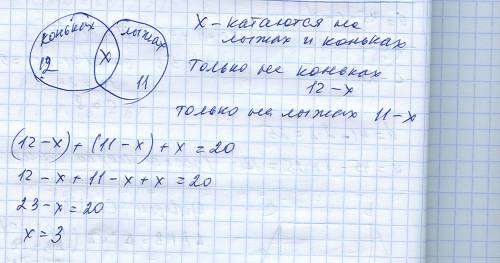 коньках
лыжах
12
x
11
X - катаются на
лыжах и коньках
только на коньках
12 - x
только на лыжах 11 - x
(12 - x) + (11 - x) + x = 20
12 - x + 11 - x + x = 20
23 - x = 20
x = 3